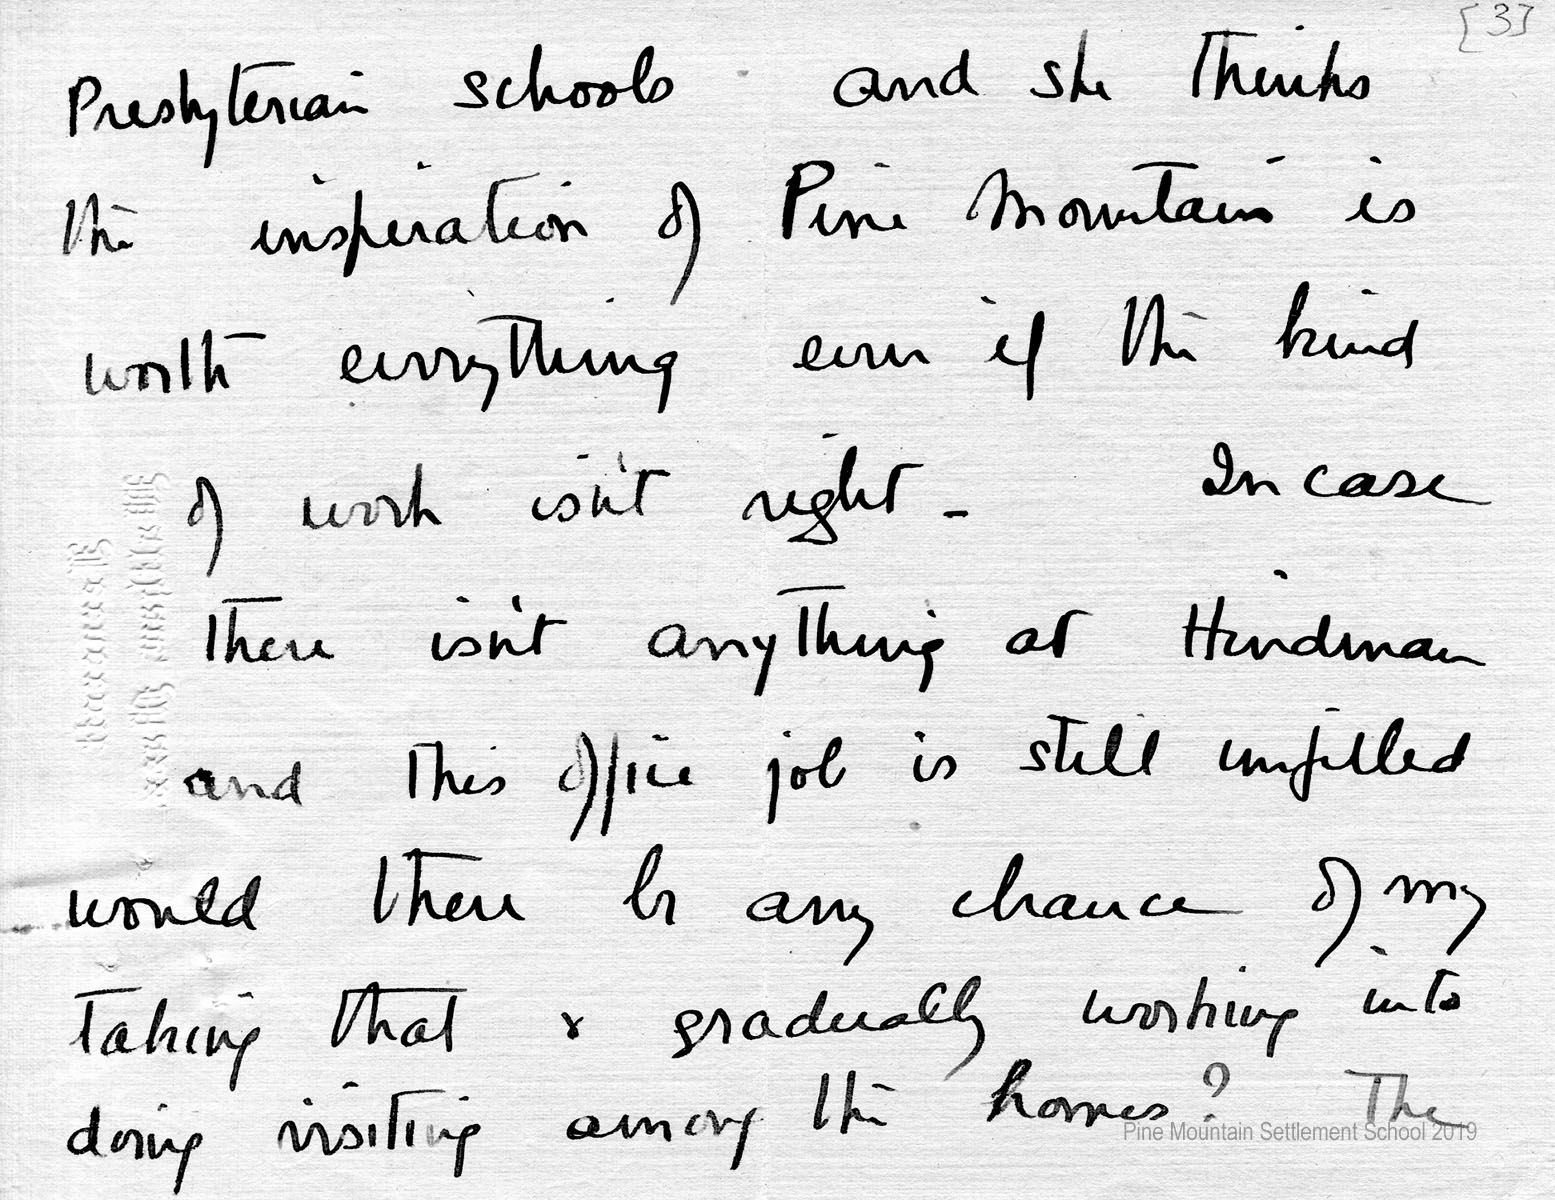 [3]
Presbyterian schools and she thinks
the inspiration of Pine Mountain is
worth everything even if the kind
of work isn't right - In case
there isn't anything at Hindman
and this office job is still unfilled
would there be any chance of my
taking that & gradually working into
doing visiting among the homes? The
Pine Mountain Settlement School 2019